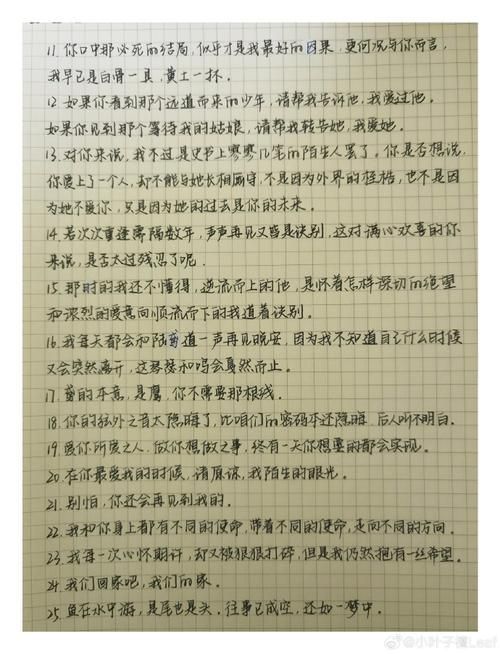 11. 你口中那必死的结局,似乎才是我最好的因果,更何况与你而言,
我早已是白骨一具,黄土一抔。
12. 如果你看到那个远道而来的少年,请帮我告诉他,我爱过他。
如果你见到那个等待我的姑娘,请帮我转告她,我爱她。
13. 对你来说,我不过是史书上寥寥几笔的陌生人罢了。你是否想说,
你爱上了一个人,却不能与她长相厮守,不是因为外界的桎梏,也不是因
为她不爱你,只是因为她的过去是你的未来。
14. 若次次重逢需隔数年,声声再见又皆是诀别,这对满心欢喜的你
来说,是否太过残忍了呢
15. 那时的我还不懂得,逆流而上的他,是怀着怎样深切的绝望
和浓烈的爱意向顺流而下的我道着诀别。
16. 我每天都会和陆鸢道一声再见晚安,因为我不知道自己什么时候
又会突然离开,这琴瑟和鸣会戛然而止。
17. 鸢的本意,是鹰,你不需要那根线。
18. 你的弦外之音太隐晦了,比咱们的密码本还隐晦,后人听不明白。
19. 爱你所爱之人,做你想做之事,终有一天你想要的都会实现。
20. 在你最爱我的时候,请原谅,我陌生的眼光。
21. 别怕,你还会再见到我的。
22. 我和你身上都有不同的使命,带着不同的使命,走向不同的方向。
23. 我每一次心怀期许,却又被狠狠打碎,但是我仍然抱有一丝希望。
24. 我们回家吧,我们的家。
25. 鱼在水中游,是尾也是头,往事已成空,还如一梦中。
@小叶子籽Leaf